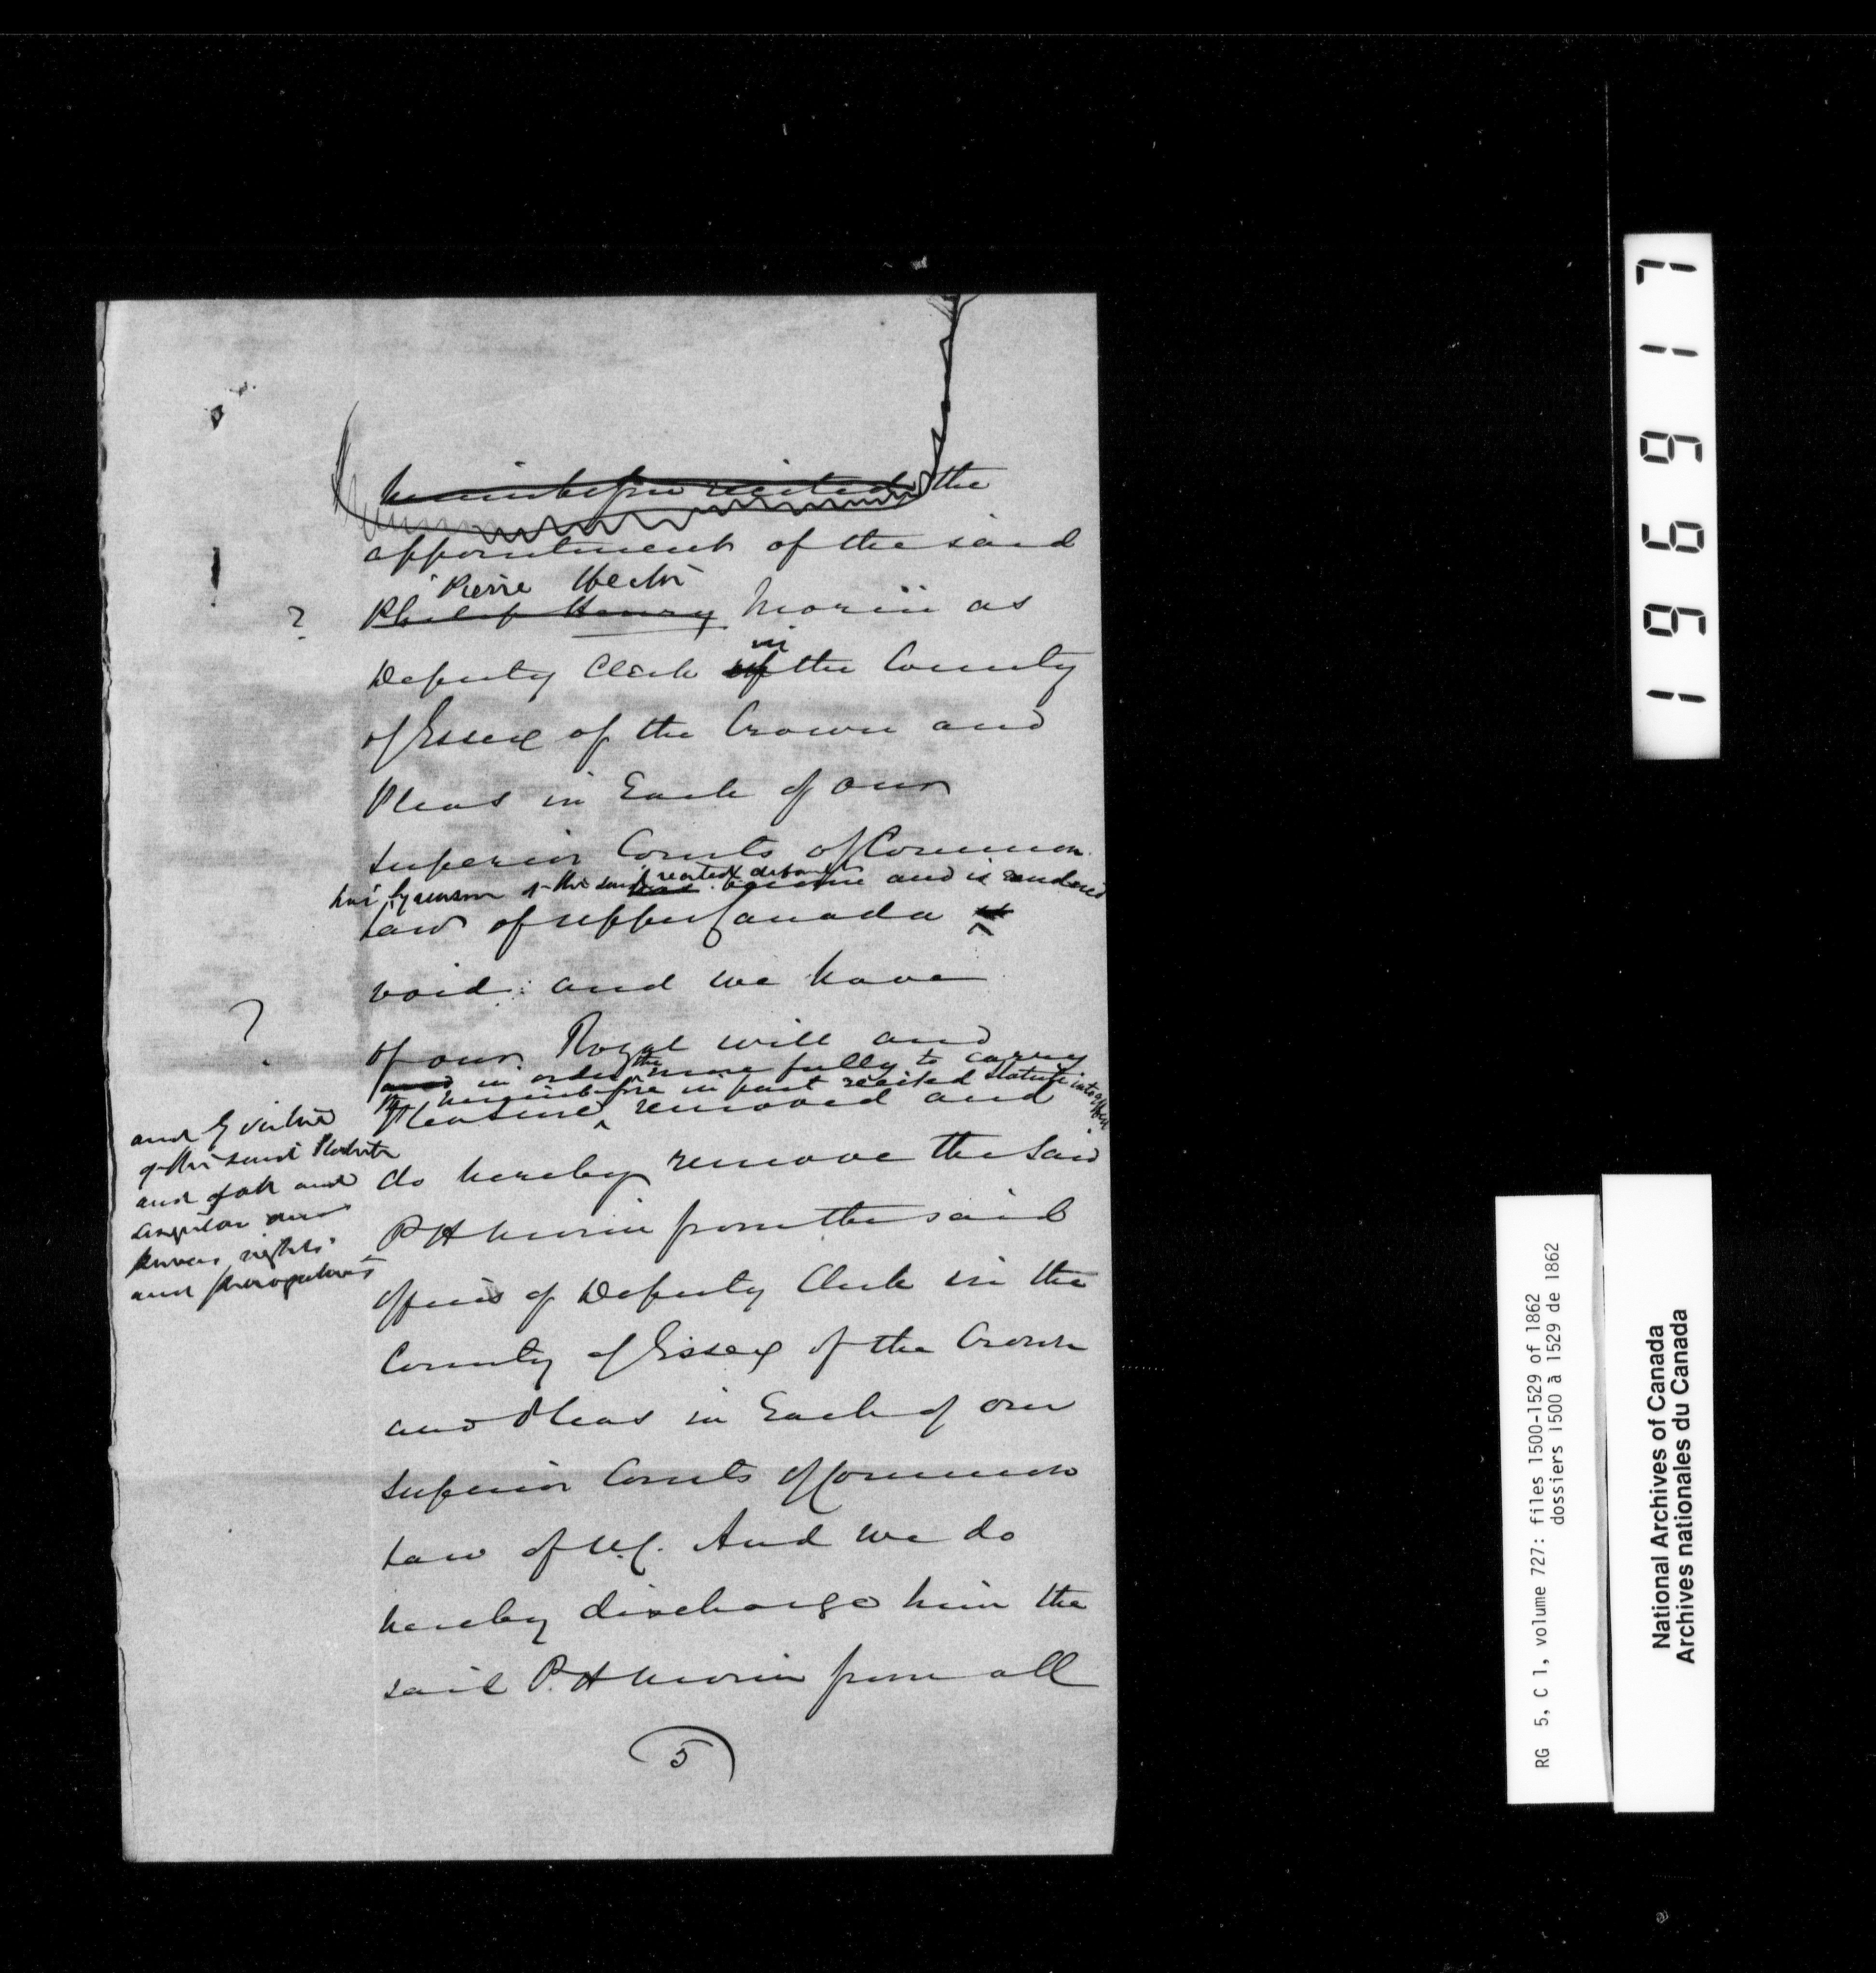 hereinbefore recited the
appointment of the said
Pierre Hector
? Philip Henry Morin as
in
Deputy Clerk of the County
of Essex of the Crown and
Pleas in Each of our
Superior Courts of Common
has by reason of the said recited default has become and is rendered
Law of Upper Canada is
void: and we have
?
of our Royal will and
and in order the more fully to carry
the hereinbefore in part recited Statute into effect
Pleasure removed and
and by virtue
of the said Statute
and of all and
singular our
powers rights
and prerogatives
do hereby remove the said
P H Morin from the said
offices of Deputy Clerk in the
County of Essex of the Crown
and Pleas in Each of our
Superior Courts of Common
Law of U.C. And we do
hereby discharge him the
said P. H Morin from all
5
196917
RG 5, C 1, volume 727: files 1500-1529 of 1862
dossiers 1500 à 1529 de 1862
National Archives of Canada
Archives nationales du Canada